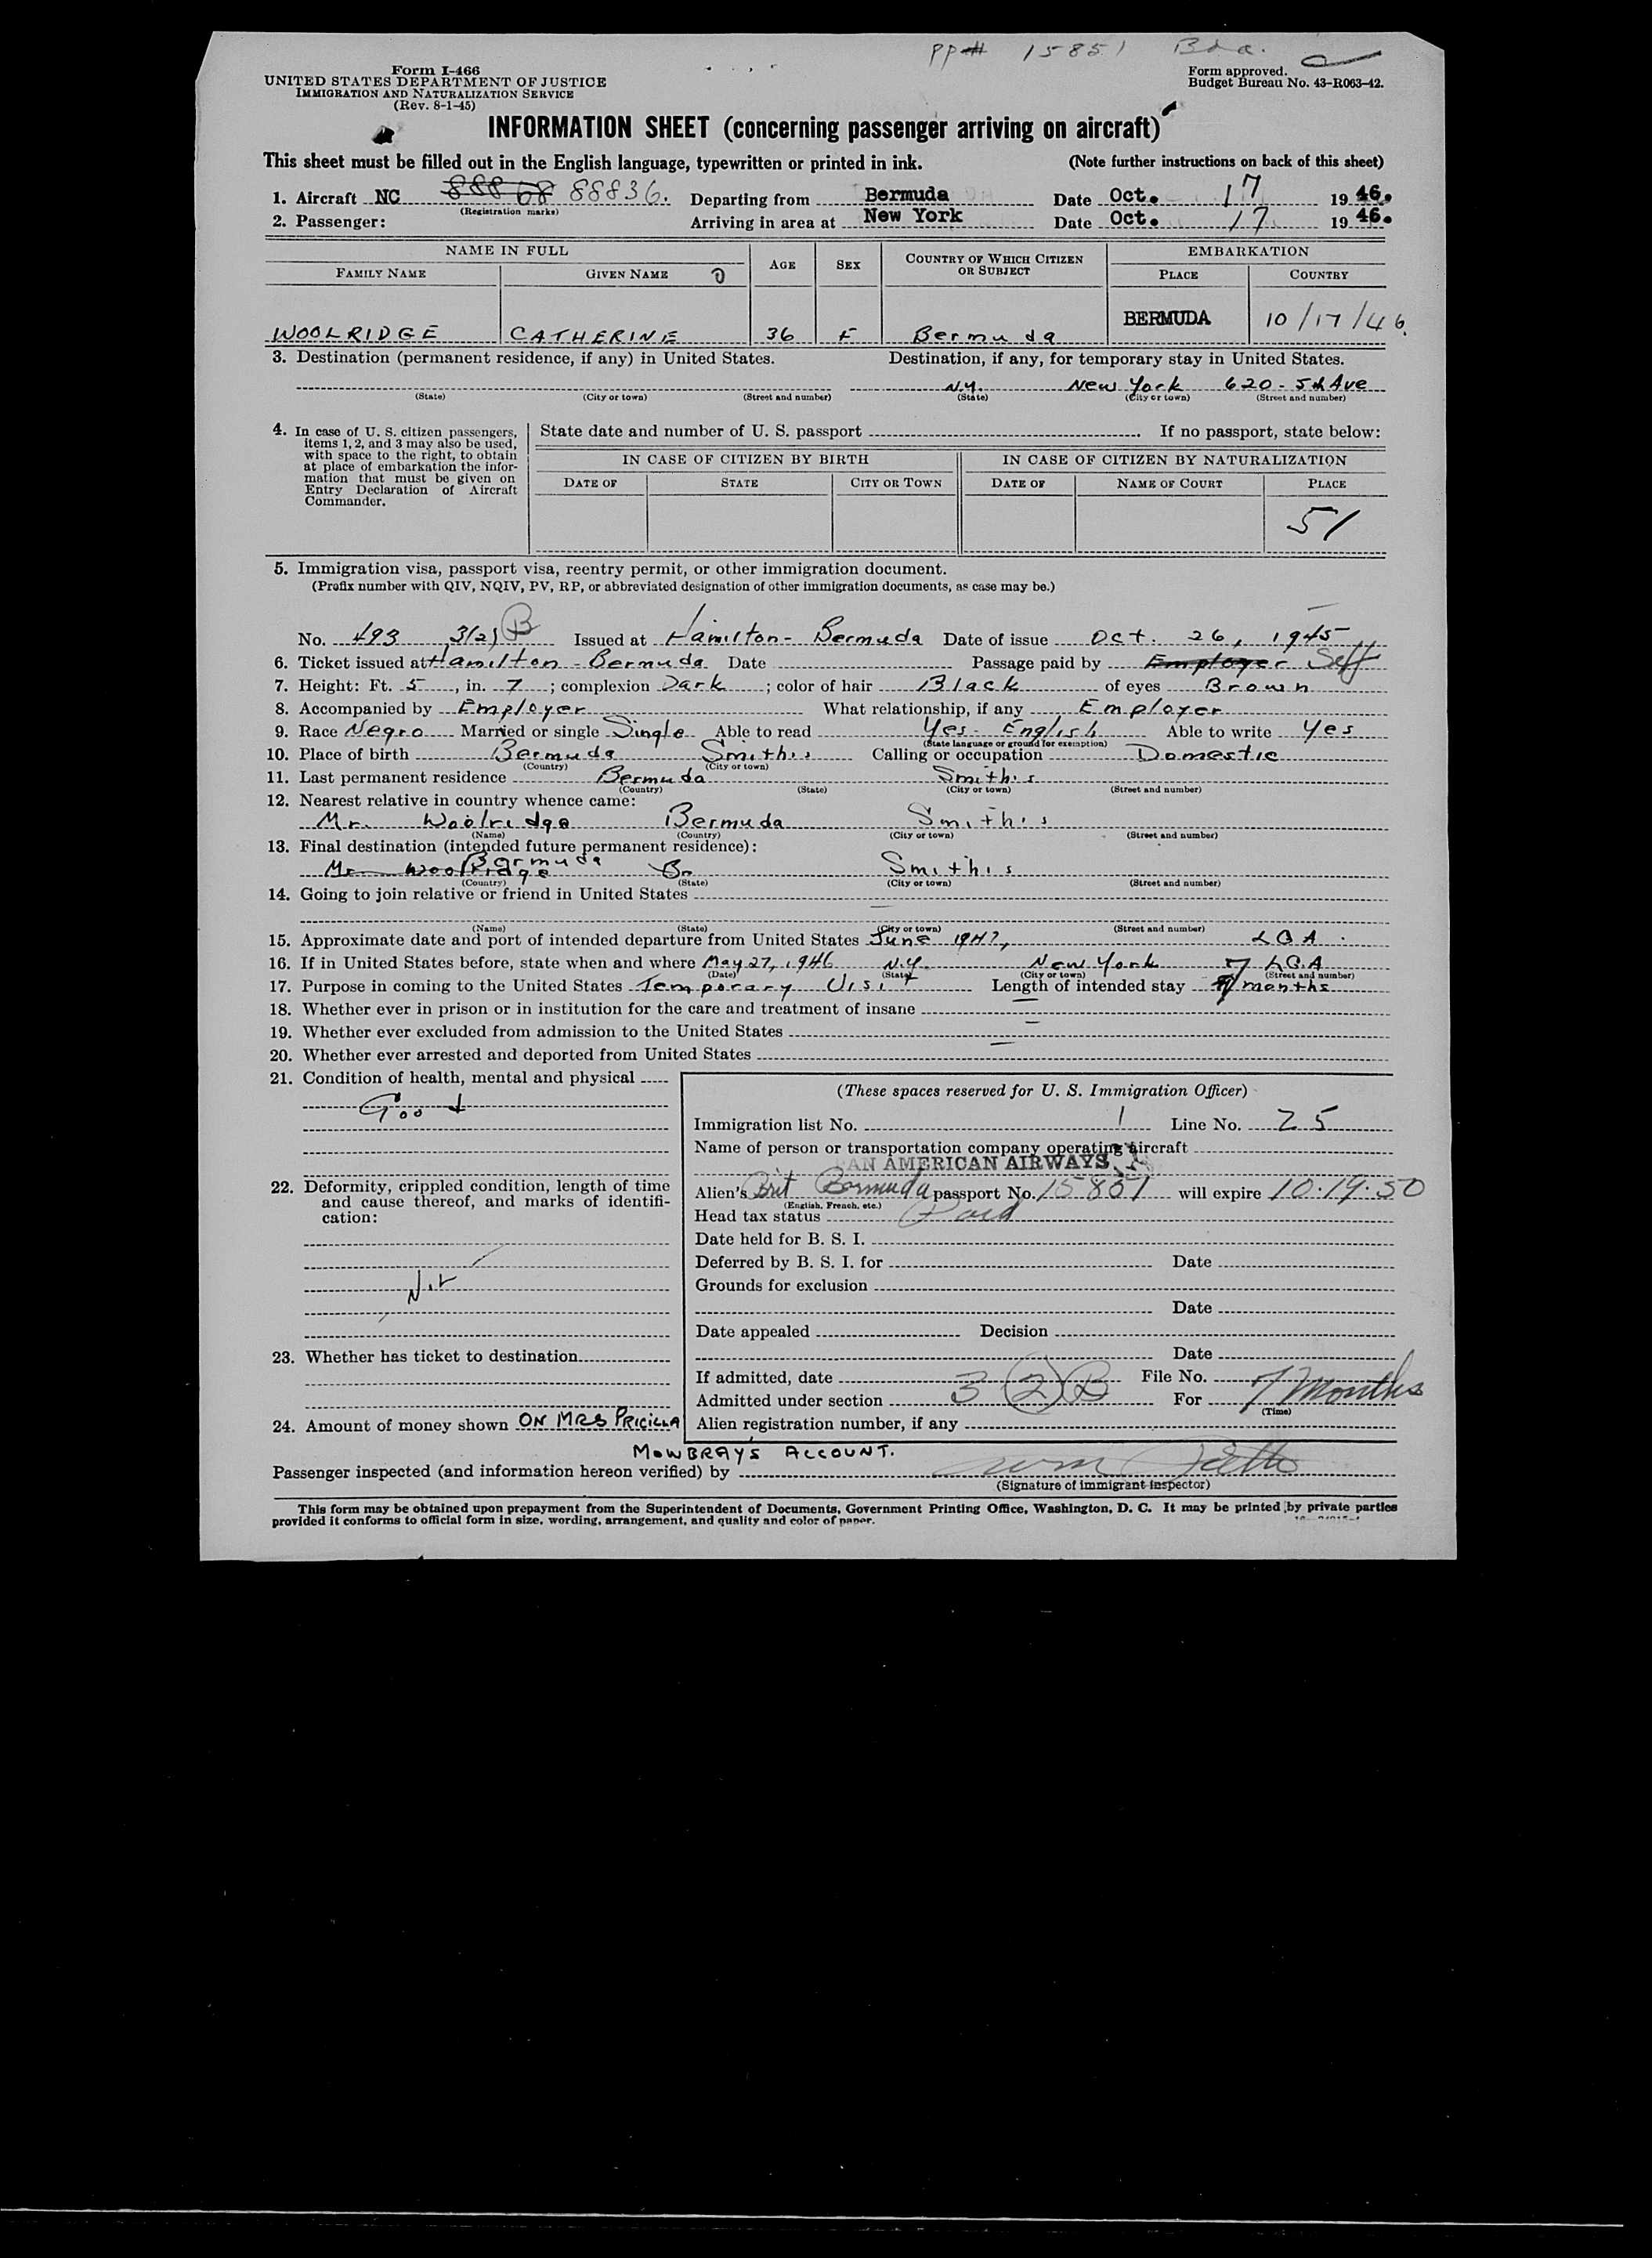 PP# 15851 Bda.
Form I-466
UNITED STATES DEPARTMENT OF JUSTICE
IMMIGRATION AND NATURALIZATION SERVICE
(Rev. 8-1-45)
Form approved.
Budget Bureau No. 43-R063-42.
INFORMATION SHEET (concerning passenger arriving on aircraft)
This sheet must be filled out in the English language, typewritten or printed in ink. (Note further instructions on back of this sheet)
1. Aircraft NC 88868 88836. Departing from Bermuda Date Oct. 17 1946.
(Registration marks)
2. Passenger: Arriving in area at New York Date Oct. 17 1946.
NAME IN FULL AGE SEX COUNTRY OF WHICH CITIZEN OR SUBJECT EMBARKATION
FAMILY NAME GIVEN NAME PLACE COUNTRY
WOOLRIDGE CATHERINE 36 F Bermuda BERMUDA 10/17/46
3. Destination (permanent residence, if any) in United States. Destination, if any, for temporary stay in United States.
N.Y. New York 620 - 5th Ave
(State) (City or town) (Street and number) (State) (City or town) (Street and number)
4. In case of U. S. citizen passengers, items 1, 2, and 3 may also be used, with space to the right, to obtain at place of embarkation the information that must be given on Entry Declaration of Aircraft Commander.
State date and number of U. S. passport If no passport, state below:
IN CASE OF CITIZEN BY BIRTH IN CASE OF CITIZEN BY NATURALIZATION
DATE OF STATE CITY OR TOWN DATE OF NAME OF COURT PLACE
51
5. Immigration visa, passport visa, reentry permit, or other immigration document.
(Prefix number with QIV, NQIV, PV, RP, or abbreviated designation of other immigration documents, as case may be.)
No. 493 3(2) B Issued at Hamilton - Bermuda Date of issue Oct. 26, 1945
6. Ticket issued at Hamilton - Bermuda Date Passage paid by Employer Self
7. Height: Ft. 5, in. 7; complexion Dark; color of hair Black of eyes Brown
8. Accompanied by Employer What relationship, if any Employer
9. Race Negro Married or single Single Able to read Yes - English Able to write Yes
(State language or ground for exemption)
10. Place of birth Bermuda Smith's Calling or occupation Domestic
(Country) (City or town)
11. Last permanent residence Bermuda Smith's
(Country) (State) (City or town) (Street and number)
12. Nearest relative in country whence came:
Mr. Woolridge Bermuda Smith's
(Name) (Country) (City or town) (Street and number)
13. Final destination (intended future permanent residence):
Mr Woolridge Bermuda Be Smith's
(Country) (State) (City or town) (Street and number)
14. Going to join relative or friend in United States
(Name) (State) (City or town) (Street and number)
15. Approximate date and port of intended departure from United States June 1947, LGA
16. If in United States before, state when and where May 27, 1946 N.Y. New York LGA
(Date) (State) (City or town) (Street and number)
17. Purpose in coming to the United States Temporary Visit Length of intended stay 7 months
18. Whether ever in prison or in institution for the care and treatment of insane —
19. Whether ever excluded from admission to the United States —
20. Whether ever arrested and deported from United States —
21. Condition of health, mental and physical
Good
22. Deformity, crippled condition, length of time and cause thereof, and marks of identification:
Nil
23. Whether has ticket to destination
24. Amount of money shown ON MRS PRICILLA
MOWBRAY'S ACCOUNT.
(These spaces reserved for U. S. Immigration Officer)
Immigration list No. 1 Line No. 25
Name of person or transportation company operating aircraft
PAN AMERICAN AIRWAYS
Alien's Brit Bermuda passport No. 15851 will expire 10.19.50
(English, French, etc.)
Head tax status Paid
Date held for B. S. I.
Deferred by B. S. I. for Date
Grounds for exclusion
Date
Date appealed Decision
Date
If admitted, date File No.
Admitted under section 3 (2) B For 7 Months
(Time)
Alien registration number, if any
Passenger inspected (and information hereon verified) by
(Signature of immigrant inspector)
This form may be obtained upon prepayment from the Superintendent of Documents, Government Printing Office, Washington, D. C. It may be printed by private parties
provided it conforms to official form in size, wording, arrangement, and quality and color of paper.